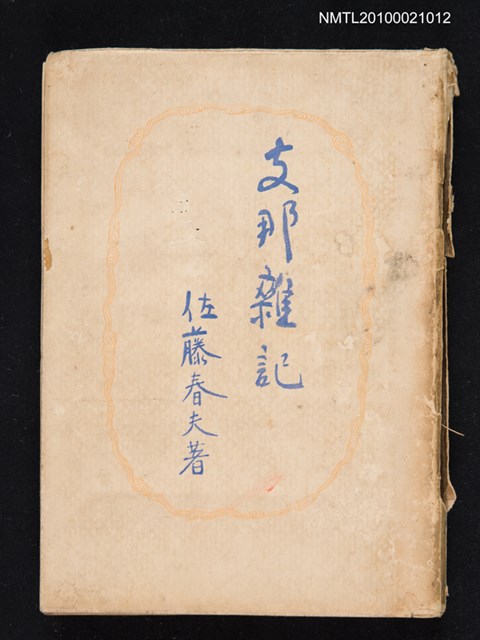 NMTL20100021012
支那雜記
佐藤春夫著